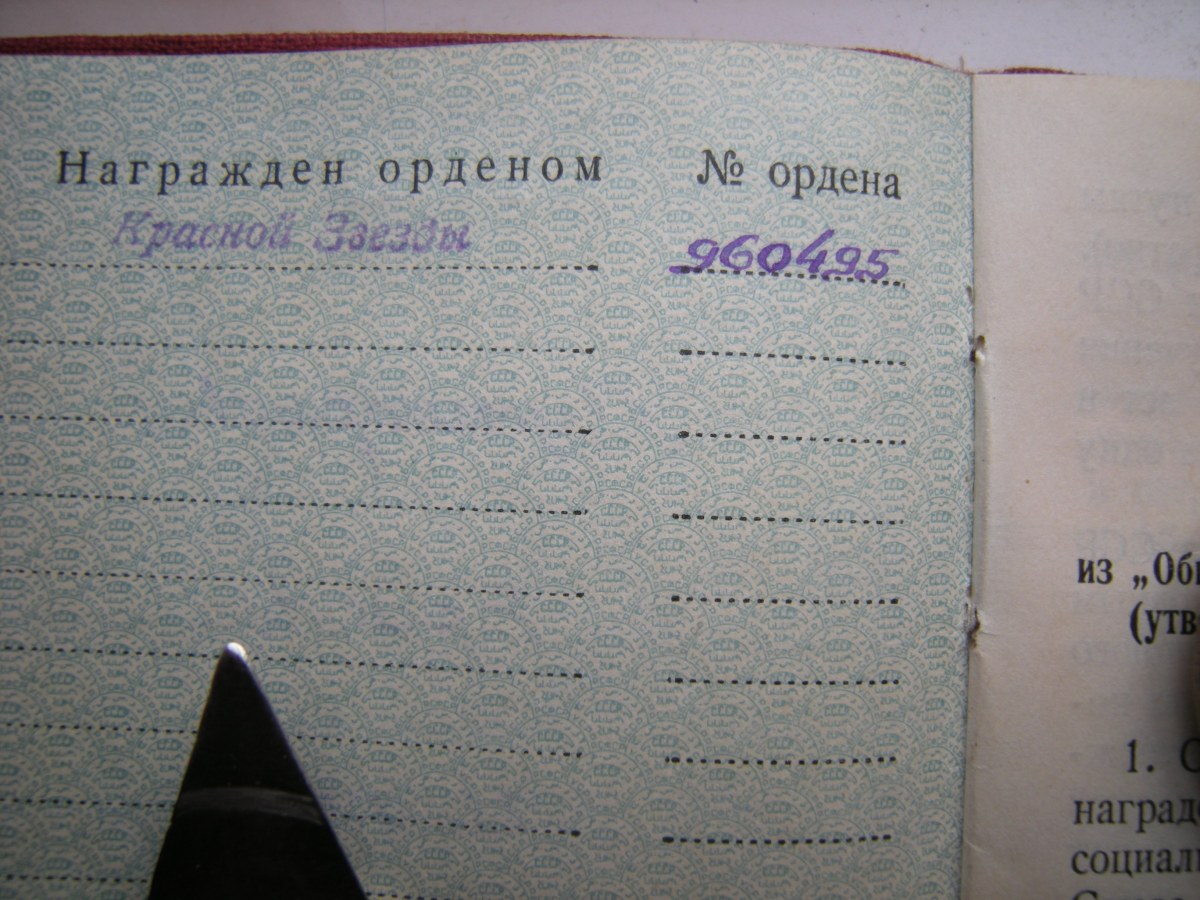 Награжден орденом № ордена
Красной Звезды 960495
из „Об
(утв
1. С
наград
социал